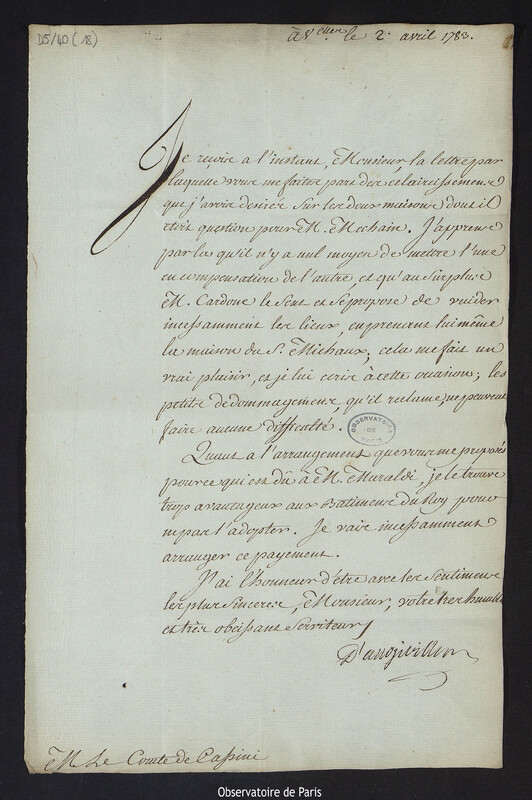 D5/40 (18)
à V.elles le 2 avril 1783.
Je reçois a l'instant, Monsieur, la lettre par
laquelle vous me faites part des eclaircissemens
que j'avois desirés sur les deux maisons dont il
étoit question pour M. Mechain. J'apprens
par la qu'il n'y a nul moyen de mettre l'une
en compensation de l'autre, et qu'au surplus
M. Cardone le sent et se propose de vuider
incessamment les lieux, en prenant lui même
la maison du S. Michaux; cela me fait un
vrai plaisir, et je lui ecris à cette occasion; les
petits dedommagemens qu'il reclame, ne peuvent
faire aucune difficulté.
OBSERVATOIRE
DE
PARIS
Quant a l'arrangement que vous me proposés
pour ce qui est dû à M. Maraldi, je le trouve
trop avantageux aux Batimens du Roy pour
ne pas l'adopter. Je vais incessamment
arranger ce payement.
J'ai l'honneur d'être avec les sentimens
les plus sinceres, Monsieur, votre tres humble
et très obeissant serviteur
D'angiviller
M. Le Comte de Cassini
Observatoire de Paris